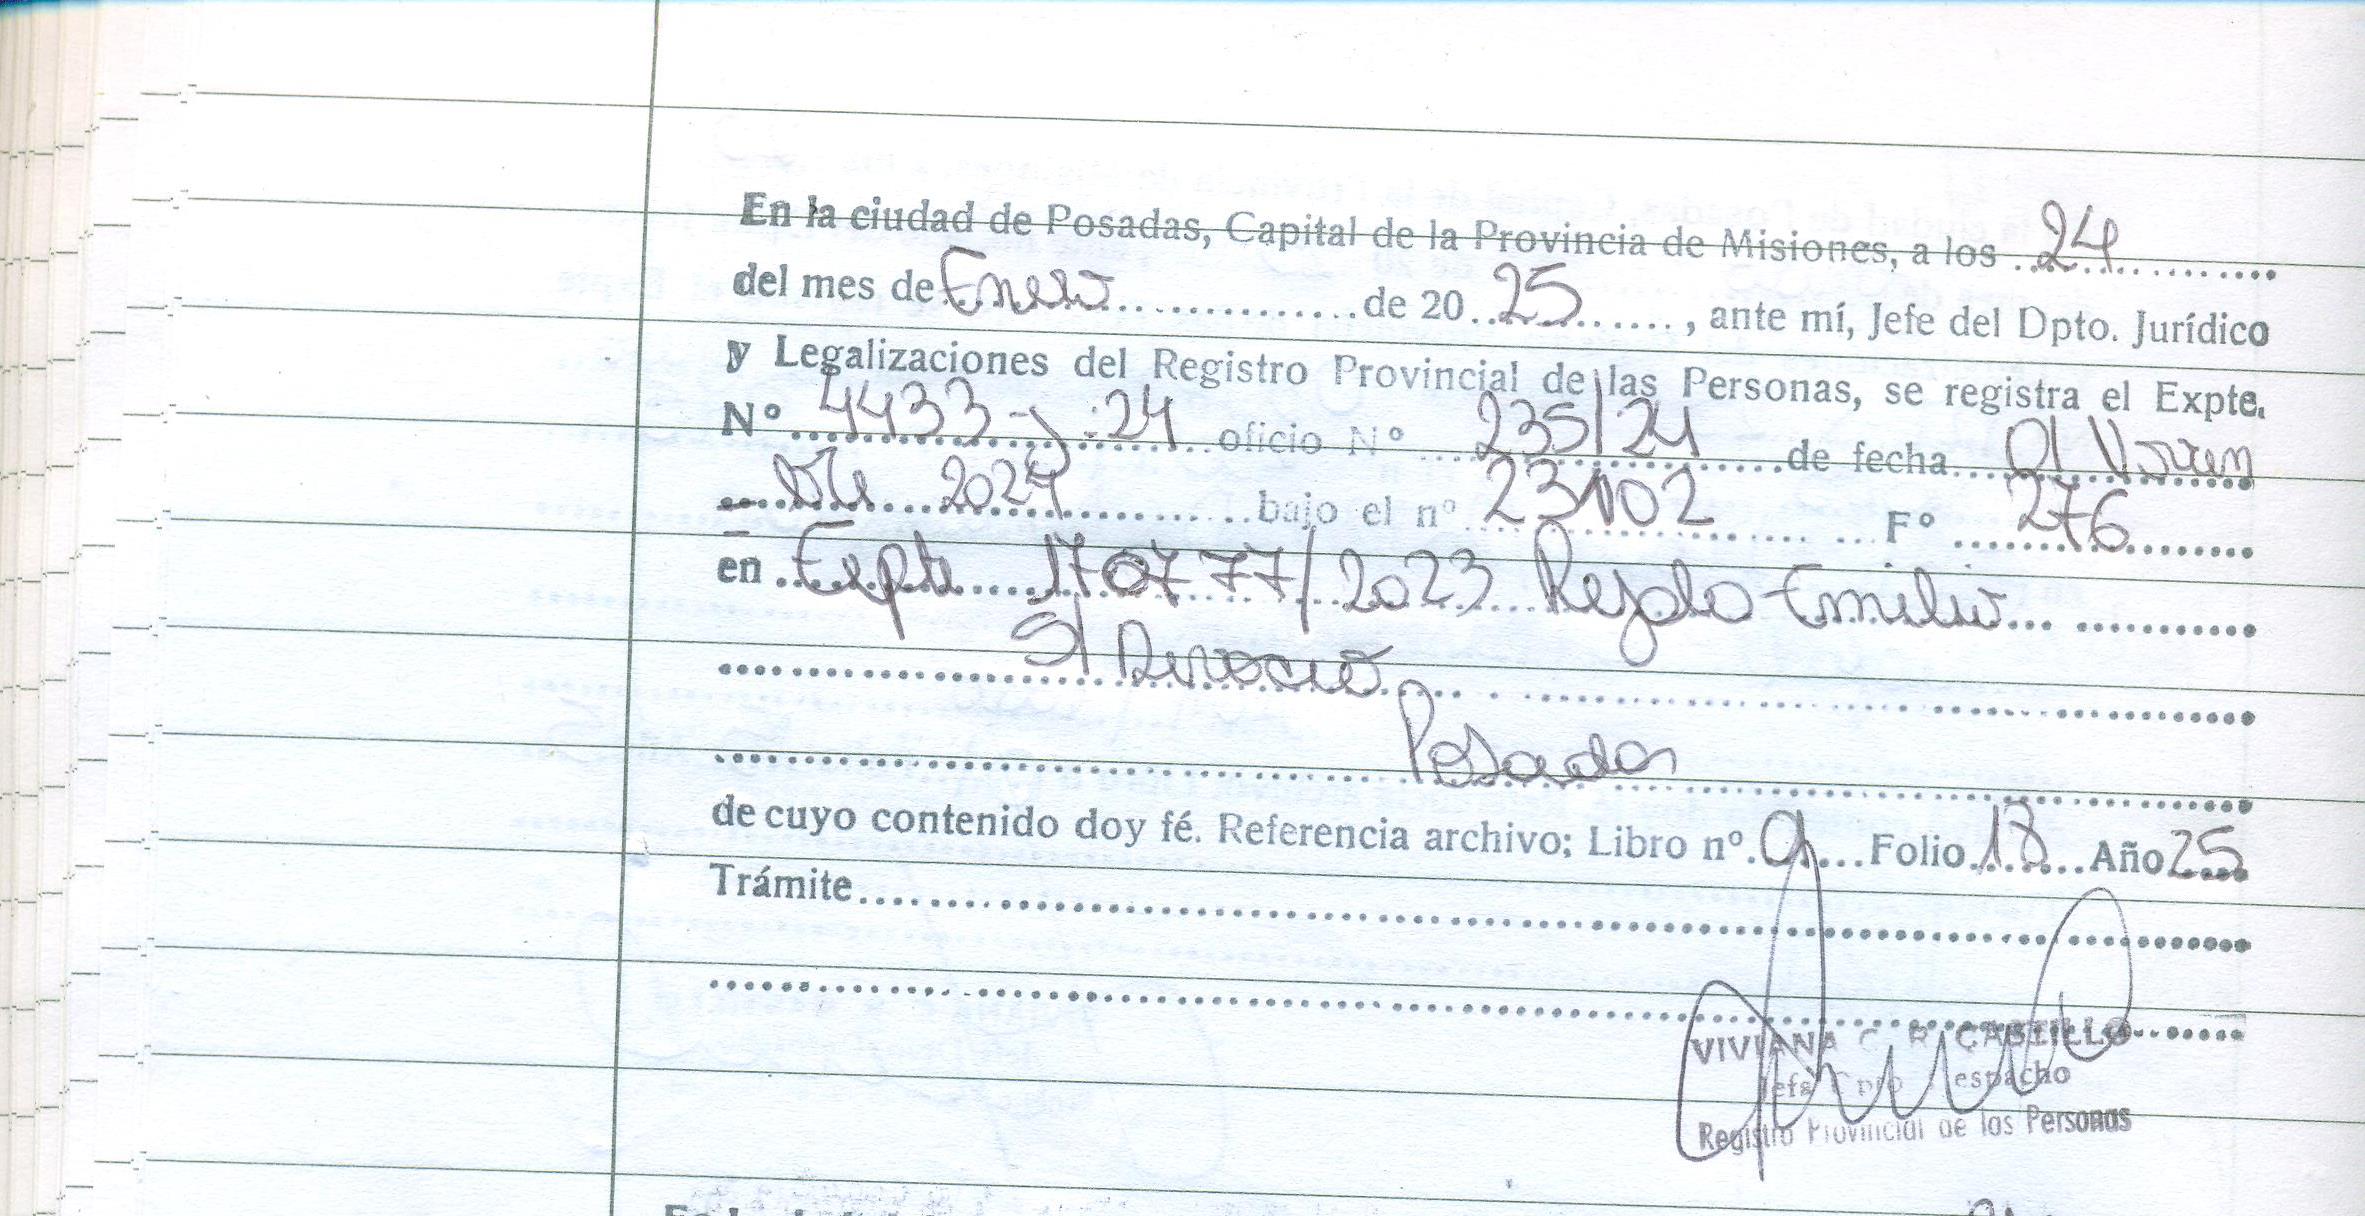 En la ciudad de Posadas, Capital de la Provincia de Misiones, a los 24
del mes de Enero de 2025, ante mí, Jefe del Dpto. Jurídico
y Legalizaciones del Registro Provincial de las Personas, se registra el Expte.
Nº 4433-J-24 oficio Nº 235/24 de fecha
2024 bajo el nº 23102 Fº 276
en Expte 170777/2023 Emilio
S/ Divorcio
Posadas
de cuyo contenido doy fé. Referencia archivo; Libro nº Folio 18 Año 25
Trámite
VIVIANA C. R. CASTILLO
Jefa Dpto Despacho
Registro Provincial de las Personas